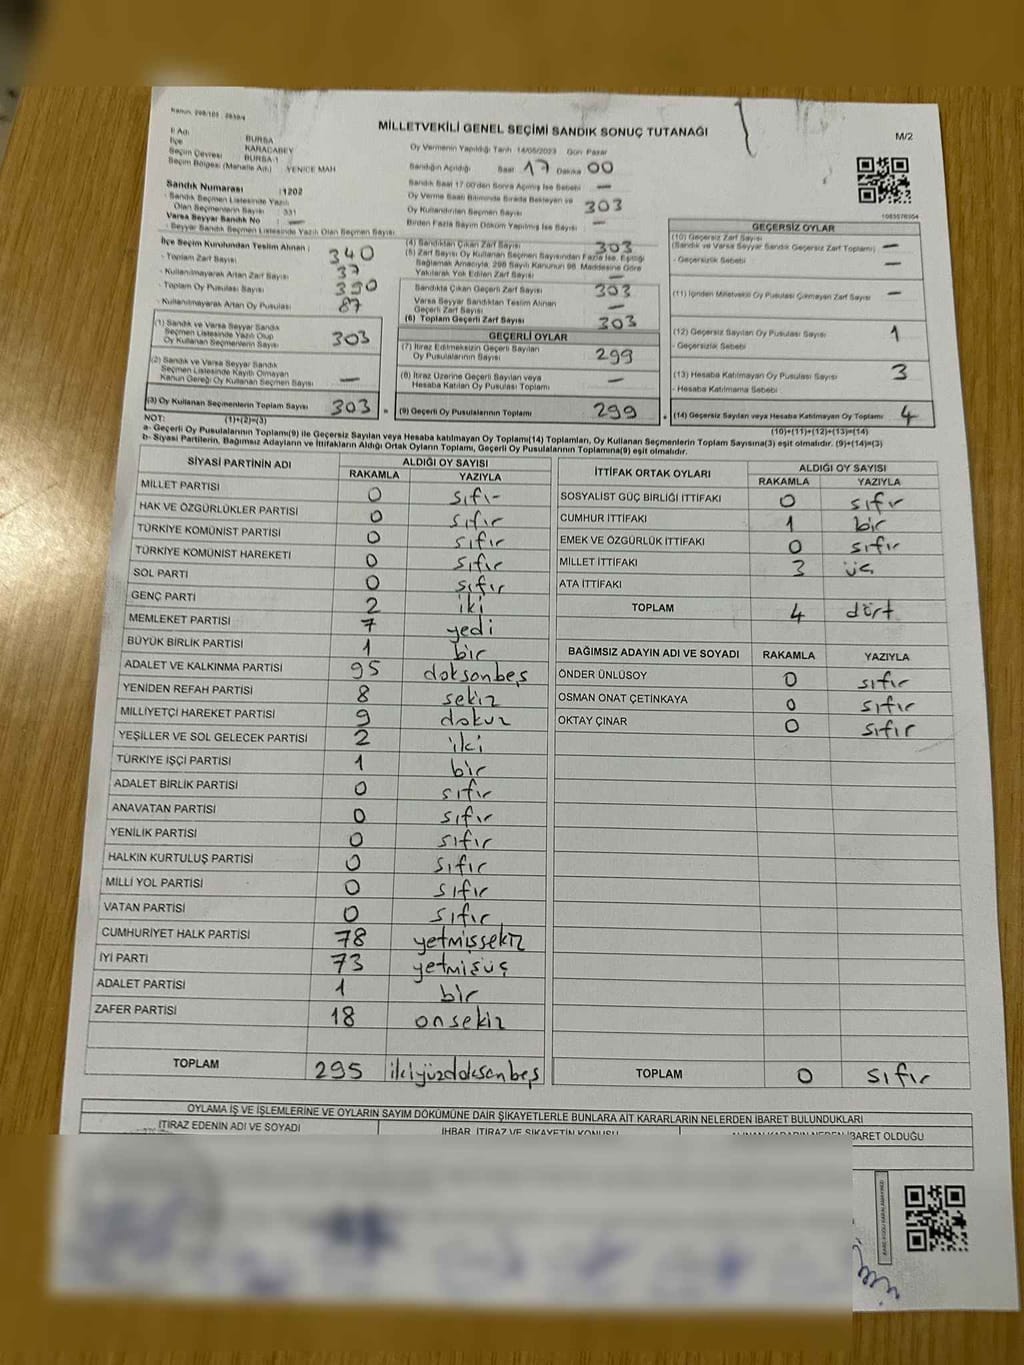 Kanun: 298/105 : 2839/4
MİLLETVEKİLİ GENEL SEÇİMİ SANDIK SONUÇ TUTANAĞI
M/2
İl Adı BURSA
İlçe KARACABEY
Seçim Çevresi BURSA-1
Seçim Bölgesi (Mahalle Adı) YENİCE MAH
Oy Vermenin Yapıldığı Tarih 14/05/2023 Gün Pazar
Sandığın Açıldığı Saat 17 Dakika 00
Sandık Saat 17:00'den Sonra Açılmış İse Sebebi —
Oy Verme Saati Bitiminde Sırada Bekleyen ve
Oy Kullandırılan Seçmen Sayısı 303
Birden Fazla Sayım Döküm Yapılmış İse Sayısı —
Sandık Numarası :1202
- Sandık Seçmen Listesinde Yazılı
Olan Seçmenlerin Sayısı 331
Varsa Seyyar Sandık No —
- Seyyar Sandık Seçmen Listesinde Yazılı Olan Seçmen Sayısı
İlçe Seçim Kurulundan Teslim Alınan :
- Toplam Zarf Sayısı 340
- Kullanılmayarak Artan Zarf Sayısı 37
- Toplam Oy Pusulası Sayısı 390
- Kullanılmayarak Artan Oy Pusulası 87
(1) Sandık ve Varsa Seyyar Sandık
Seçmen Listesinde Yazılı Olup
Oy Kullanan Seçmenlerin Sayısı 303
(2) Sandık ve Varsa Seyyar Sandık
Seçmen Listesinde Kayıtlı Olmayan
Kanun Gereği Oy Kullanan Seçmen Sayısı —
(3) Oy Kullanan Seçmenlerin Toplam Sayısı 303 =
(1)+(2)=(3)
(4) Sandıktan Çıkan Zarf Sayısı 303
(5) Zarf Sayısı Oy Kullanan Seçmen Sayısından Fazla İse, Eşitliği
Sağlamak Amacıyla, 298 Sayılı Kanunun 98. Maddesine Göre
Yakılarak Yok Edilen Zarf Sayısı —
Sandıkta Çıkan Geçerli Zarf Sayısı 303
Varsa Seyyar Sandıktan Teslim Alınan
Geçerli Zarf Sayısı —
(6) Toplam Geçerli Zarf Sayısı 303
GEÇERLİ OYLAR
(7) İtiraz Edilmeksizin Geçerli Sayılan
Oy Pusulalarının Sayısı 299
(8) İtiraz Üzerine Geçerli Sayılan veya
Hesaba Katılan Oy Pusulası Toplamı —
(9) Geçerli Oy Pusulalarının Toplamı 299 +
1083576354
GEÇERSİZ OYLAR
(10) Geçersiz Zarf Sayısı
(Sandık ve Varsa Seyyar Sandık Geçersiz Zarf Toplamı) —
- Geçersizlik Sebebi —
(11) İçinden Milletvekili Oy Pusulası Çıkmayan Zarf Sayısı —
(12) Geçersiz Sayılan Oy Pusulası Sayısı 1
- Geçersizlik Sebebi
(13) Hesaba Katılmayan Oy Pusulası Sayısı 3
- Hesaba Katılmama Sebebi
(14) Geçersiz Sayılan veya Hesaba Katılmayan Oy Toplamı 4
(10)+(11)+(12)+(13)=(14)
NOT:
a- Geçerli Oy Pusulalarının Toplamı(9) ile Geçersiz Sayılan veya Hesaba katılmayan Oy Toplamı(14) Toplamları, Oy Kullanan Seçmenlerin Toplam Sayısına(3) eşit olmalıdır. (9)+(14)=(3)
b- Siyasi Partilerin, Bağımsız Adayların ve İttifakların Aldığı Ortak Oyların Toplamı, Geçerli Oy Pusulalarının Toplamına(9) eşit olmalıdır.
SİYASİ PARTİNİN ADI ALDIĞI OY SAYISI
RAKAMLA YAZIYLA
MİLLET PARTİSİ 0 sıfır
HAK VE ÖZGÜRLÜKLER PARTİSİ 0 sıfır
TÜRKİYE KOMÜNİST PARTİSİ 0 sıfır
TÜRKİYE KOMÜNİST HAREKETİ 0 sıfır
SOL PARTİ 0 sıfır
GENÇ PARTİ 2 iki
MEMLEKET PARTİSİ 7 yedi
BÜYÜK BİRLİK PARTİSİ 1 bir
ADALET VE KALKINMA PARTİSİ 95 doksanbeş
YENİDEN REFAH PARTİSİ 8 sekiz
MİLLİYETÇİ HAREKET PARTİSİ 9 dokuz
YEŞİLLER VE SOL GELECEK PARTİSİ 2 iki
TÜRKİYE İŞÇİ PARTİSİ 1 bir
ADALET BİRLİK PARTİSİ 0 sıfır
ANAVATAN PARTİSİ 0 sıfır
YENİLİK PARTİSİ 0 sıfır
HALKIN KURTULUŞ PARTİSİ 0 sıfır
MİLLİ YOL PARTİSİ 0 sıfır
VATAN PARTİSİ 0 sıfır
CUMHURİYET HALK PARTİSİ 78 yetmişsekiz
İYİ PARTİ 73 yetmişüç
ADALET PARTİSİ 1 bir
ZAFER PARTİSİ 18 onsekiz
TOPLAM 295 ikiyüzdoksanbeş
İTTİFAK ORTAK OYLARI ALDIĞI OY SAYISI
RAKAMLA YAZIYLA
SOSYALİST GÜÇ BİRLİĞİ İTTİFAKI 0 sıfır
CUMHUR İTTİFAKI 1 bir
EMEK VE ÖZGÜRLÜK İTTİFAKI 0 sıfır
MİLLET İTTİFAKI 3 üç
ATA İTTİFAKI
TOPLAM 4 dört
BAĞIMSIZ ADAYIN ADI VE SOYADI RAKAMLA YAZIYLA
ÖNDER ÜNLÜSOY 0 sıfır
OSMAN ONAT ÇETİNKAYA 0 sıfır
OKTAY ÇINAR 0 sıfır
TOPLAM 0 sıfır
OYLAMA İŞ VE İŞLEMLERİNE VE OYLARIN SAYIM DÖKÜMÜNE DAİR ŞİKAYETLERLE BUNLARA AİT KARARLARIN NELERDEN İBARET BULUNDUKLARI
İTİRAZ EDENİN ADI VE SOYADI
İHBAR, İTİRAZ VE ŞİKAYETİN KONUSU
ALINAN KARARIN NEDEN İBARET OLDUĞU